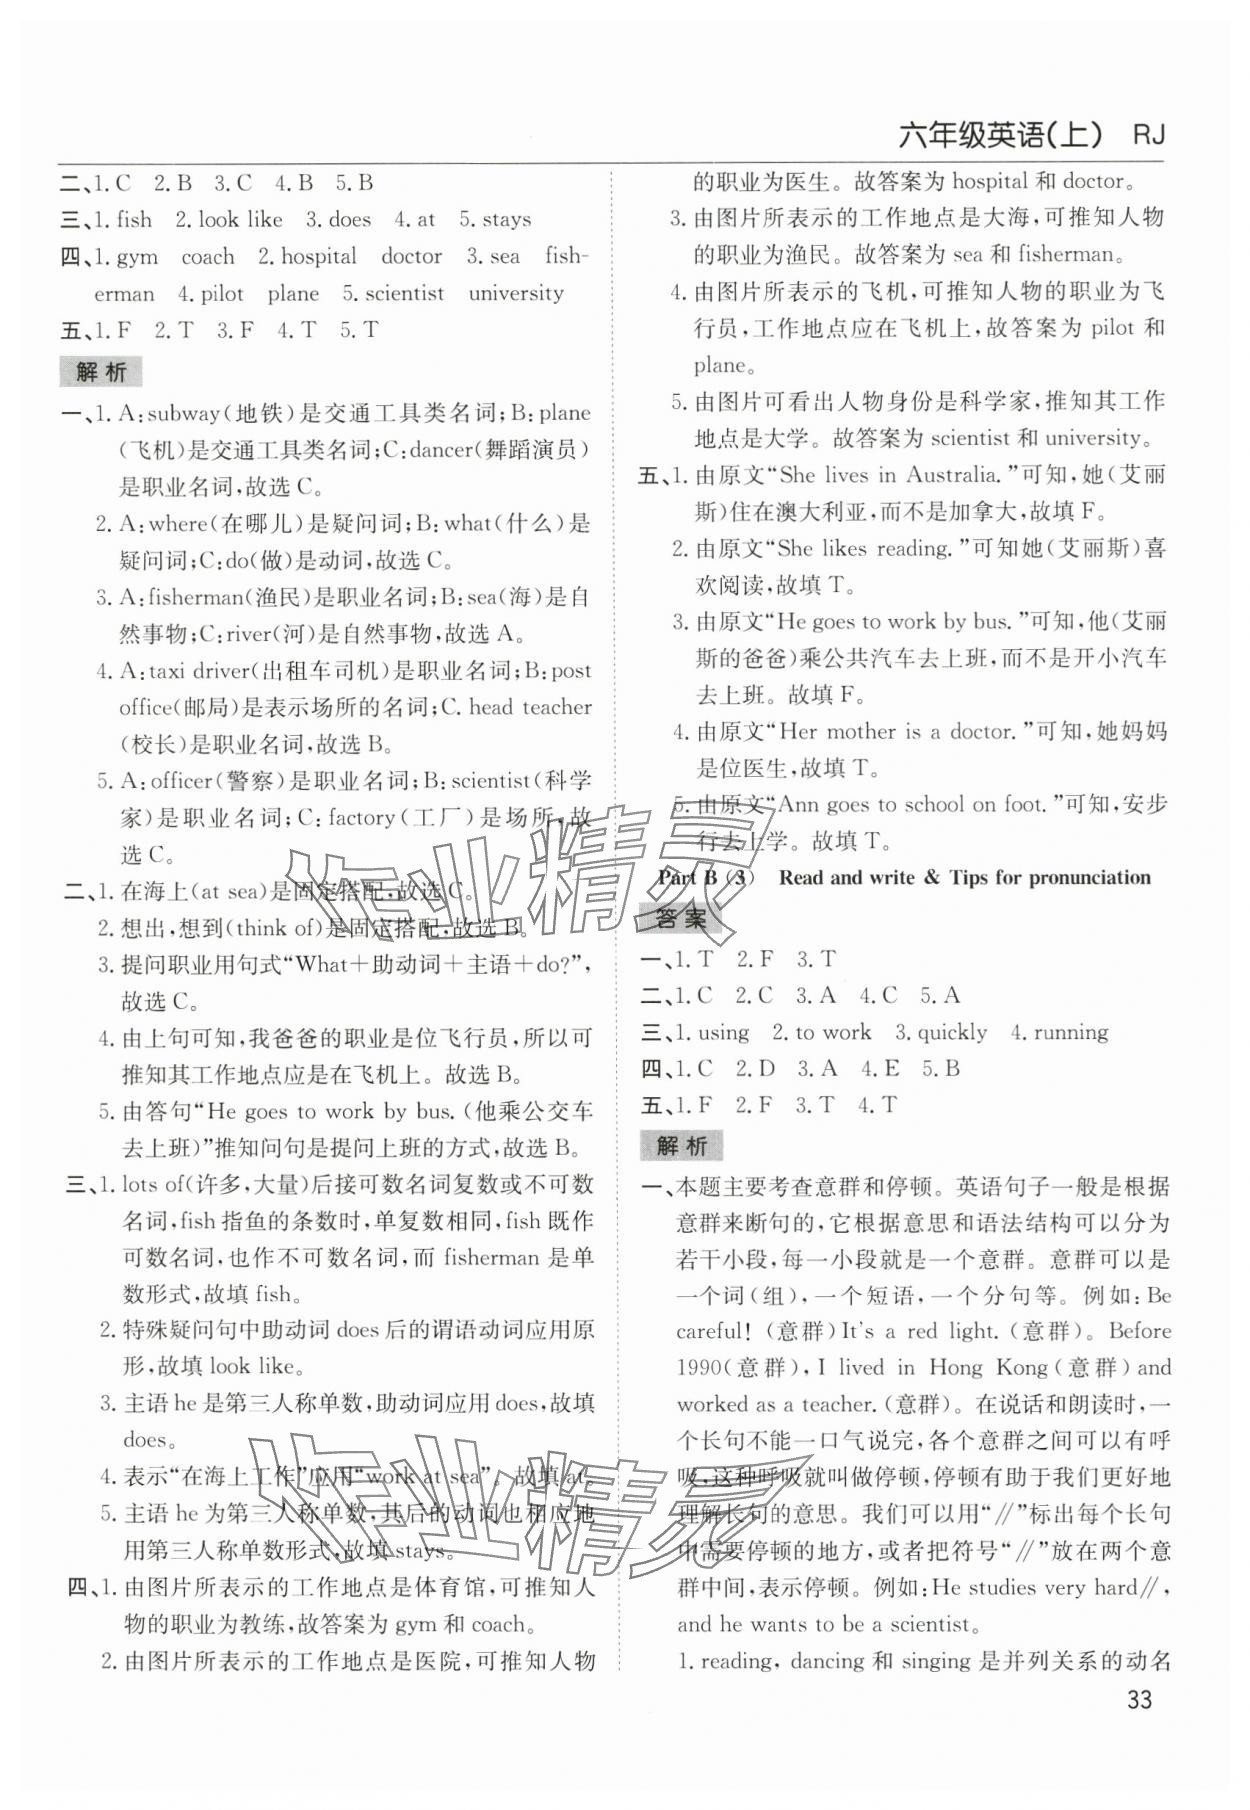 六年级英语(上) RJ
二、1. C 2. B 3. C 4. B 5. B
三、1. fish 2. look like 3. does 4. at 5. stays
四、1. gym coach 2. hospital doctor 3. sea fish-
erman 4. pilot plane 5. scientist university
五、1. F 2. T 3. F 4. T 5. T
解析
一、1. A:subway(地铁)是交通工具类名词;B:plane
(飞机)是交通工具类名词;C:dancer(舞蹈演员)
是职业名词,故选 C。
2. A:where(在哪儿)是疑问词;B:what(什么)是
疑问词;C:do(做)是动词,故选 C。
3. A:fisherman(渔民)是职业名词;B:sea(海)是自
然事物;C:river(河)是自然事物,故选 A。
4. A:taxi driver(出租车司机)是职业名词;B:post
office(邮局)是表示场所的名词;C. head teacher
(校长)是职业名词,故选 B。
5. A:officer(警察)是职业名词;B:scientist(科学
家)是职业名词;C:factory(工厂)是场所,故
选 C。
二、1. 在海上(at sea)是固定搭配,故选 C。
2. 想出,想到(think of)是固定搭配,故选 B。
3. 提问职业用句式“What+助动词+主语+do?”,
故选 C。
4. 由上句可知,我爸爸的职业是位飞行员,所以可
推知其工作地点应是在飞机上。故选 B。
5. 由答句“He goes to work by bus.(他乘公交车
去上班)”推知问句是提问上班的方式,故选 B。
三、1. lots of(许多,大量)后接可数名词复数或不可数
名词,fish 指鱼的条数时,单复数相同,fish 既作
可数名词,也作不可数名词,而 fisherman 是单
数形式,故填 fish。
2. 特殊疑问句中助动词 does 后的谓语动词应用原
形,故填 look like。
3. 主语 he 是第三人称单数,助动词应用 does,故填
does。
4. 表示“在海上工作”应用“work at sea”。故填 at。
5. 主语 he 为第三人称单数,其后的动词也相应地
用第三人称单数形式,故填 stays。
四、1. 由图片所表示的工作地点是体育馆,可推知人
物的职业为教练,故答案为 gym 和 coach。
2. 由图片所表示的工作地点是医院,可推知人物
的职业为医生。故答案为 hospital 和 doctor。
3. 由图片所表示的工作地点是大海,可推知人物
的职业为渔民。故答案为 sea 和 fisherman。
4. 由图片所表示的飞机,可推知人物的职业为飞
行员,工作地点应在飞机上,故答案为 pilot 和
plane。
5. 由图片可看出人物身份是科学家,推知其工作
地点是大学。故答案为 scientist 和 university。
五、1. 由原文“She lives in Australia.”可知,她(艾丽
斯)住在澳大利亚,而不是加拿大,故填 F。
2. 由原文“She likes reading.”可知她(艾丽斯)喜
欢阅读,故填 T。
3. 由原文“He goes to work by bus.”可知,他(艾丽
斯的爸爸)乘公共汽车去上班,而不是开小汽车
去上班。故填 F。
4. 由原文“Her mother is a doctor.”可知,她妈妈
是位医生,故填 T。
5. 由原文“Ann goes to school on foot.”可知,安步
行去上学。故填 T。
Part B (3) Read and write & Tips for pronunciation
答案
一、1. T 2. F 3. T
二、1. C 2. C 3. A 4. C 5. A
三、1. using 2. to work 3. quickly 4. running
四、1. C 2. D 3. A 4. E 5. B
五、1. F 2. F 3. T 4. T
解析
一、本题主要考查意群和停顿。英语句子一般是根据
意群来断句的,它根据意思和语法结构可以分为
若干小段,每一小段就是一个意群。意群可以是
一个词(组),一个短语,一个分句等。例如:Be
careful!(意群)It's a red light.(意群)。Before
1990(意群),I lived in Hong Kong(意群)and
worked as a teacher.(意群)。在说话和朗读时,一
个长句不能一口气说完,各个意群之间可以有呼
吸,这种呼吸就叫做停顿,停顿有助于我们更好地
理解长句的意思。我们可以用“//”标出每个长句
中需要停顿的地方,或者把符号“//”放在两个意
群中间,表示停顿。例如:He studies very hard//,
and he wants to be a scientist。
1. reading, dancing 和 singing 是并列关系的动名
33
作业精灵
作业精灵